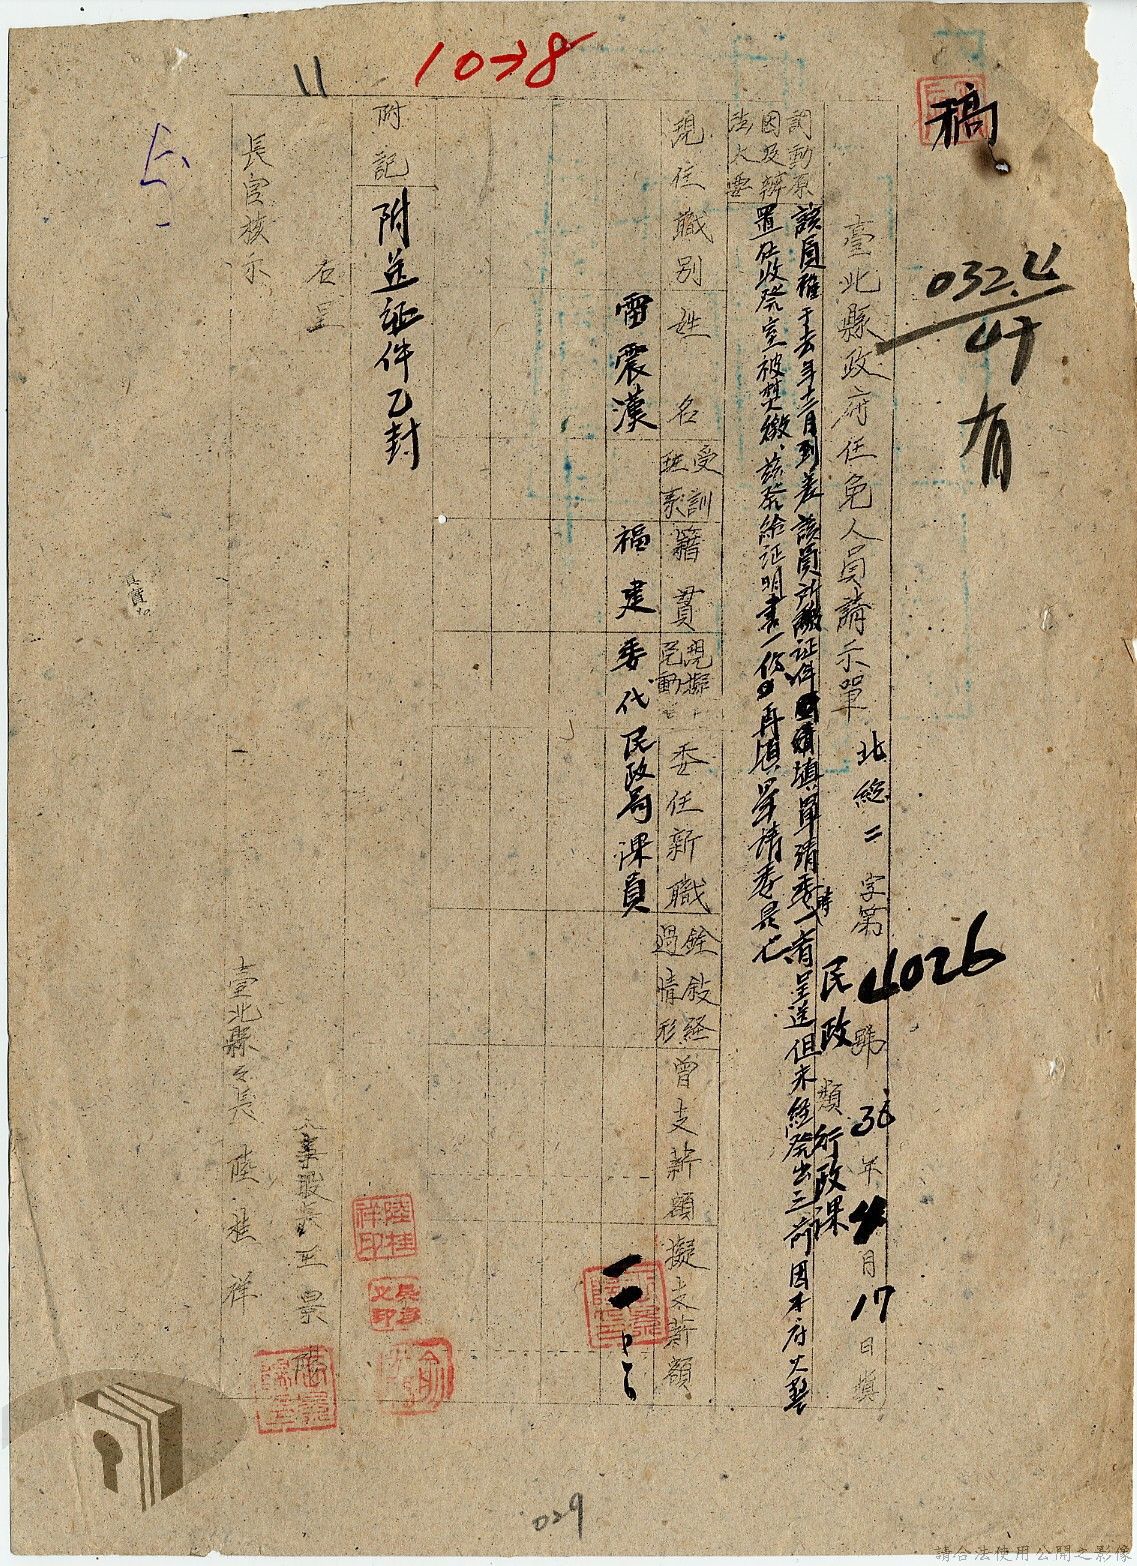 1078
11
稿
032.4
47
有
臺北縣政府任免人員請示單
北總二字第4026號
36年4月17日填
民政類行政課
調動原因及辦法大要
該員雖于去年十二月到差該員所繳証件填單請委時一省呈送但未經發出三前因本府火警
置在收發室被焚燬茲發給証明書一份再填單請委是也
現任職別
姓名
受訓班系
籍貫
現擬
動
委任新職
銓敘經過情形
曾支薪額
擬支薪額
雷震漢
福建
委代民政局課員
附記
附送証件乙封
右呈
長官核示
人事股長王景
臺北縣縣長陸桂祥
陸桂祥印
029
請合法使用公開之影像